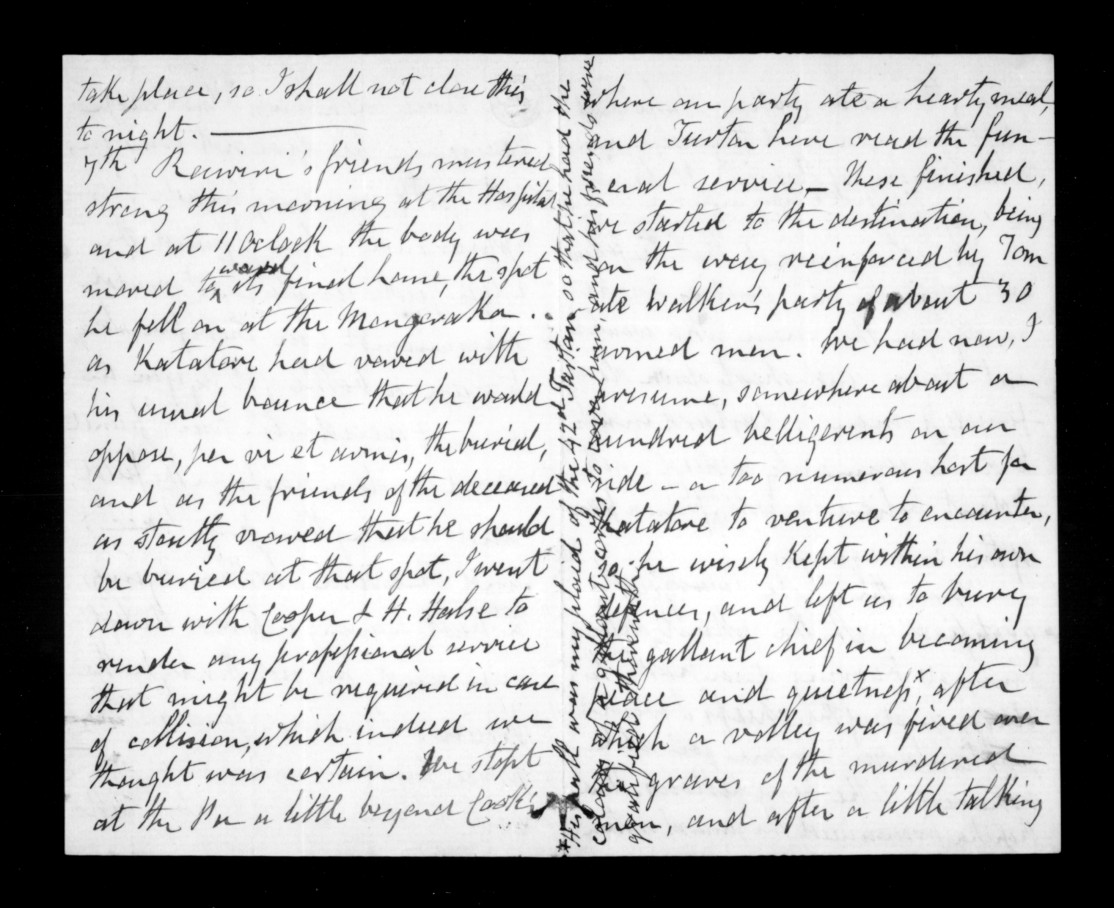 take place, so I shall not close this
to night. ———
7th Rawiri's friends mustered
strong this morning at the Hospital
and at 11 Oclock the body was
moved toward its final home, the spot
he fell on at the Mangaraka.
as Katatore had vowed with
his usual bounce that he would
oppose, per vi et armis, the burial,
and as the friends of the deceased
as stoutly vowed that he should
be buried at that spot, I went
down with Cooper & H. Halse to
render any professional service
that might be required in case
of collision, which indeed we
thought was certain. We stopt
at the Pa a little beyond
where our party ate a hearty meal,
and Turton here read the fun-
eral service — These finished,
we started to the destination, being
on the way reinforced by Tom
ate Walker's party of about 30
armed men. We had now, I
presume, somewhere about a
hundred belligerents on our
side — a too numerous host for
Katatore to venture to encounter,
so he wisely kept within his own
defences, and left us to bury
the gallant chief in becoming
peace and quietness x after
which a volley was fired over
the graves of the murdered
men, and after a little talking
x His pall was my plaid of the 42d Tartan so that he had the
colours of a gallant to cover him and his friends were
gratified therewith